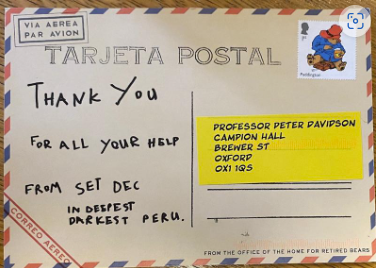 VIA AEREA
PAR AVION
TARJETA POSTAL
1st
Paddington
THANK YOU
FOR ALL YOUR HELP
FROM SET DEC
IN DEEPEST
DARKEST PERU.
PROFESSOR PETER DAVIDSON
CAMPION HALL
BREWER ST
OXFORD
OX1 1QS
CORREO AEREO
FROM THE OFFICE OF THE HOME FOR RETIRED BEARS